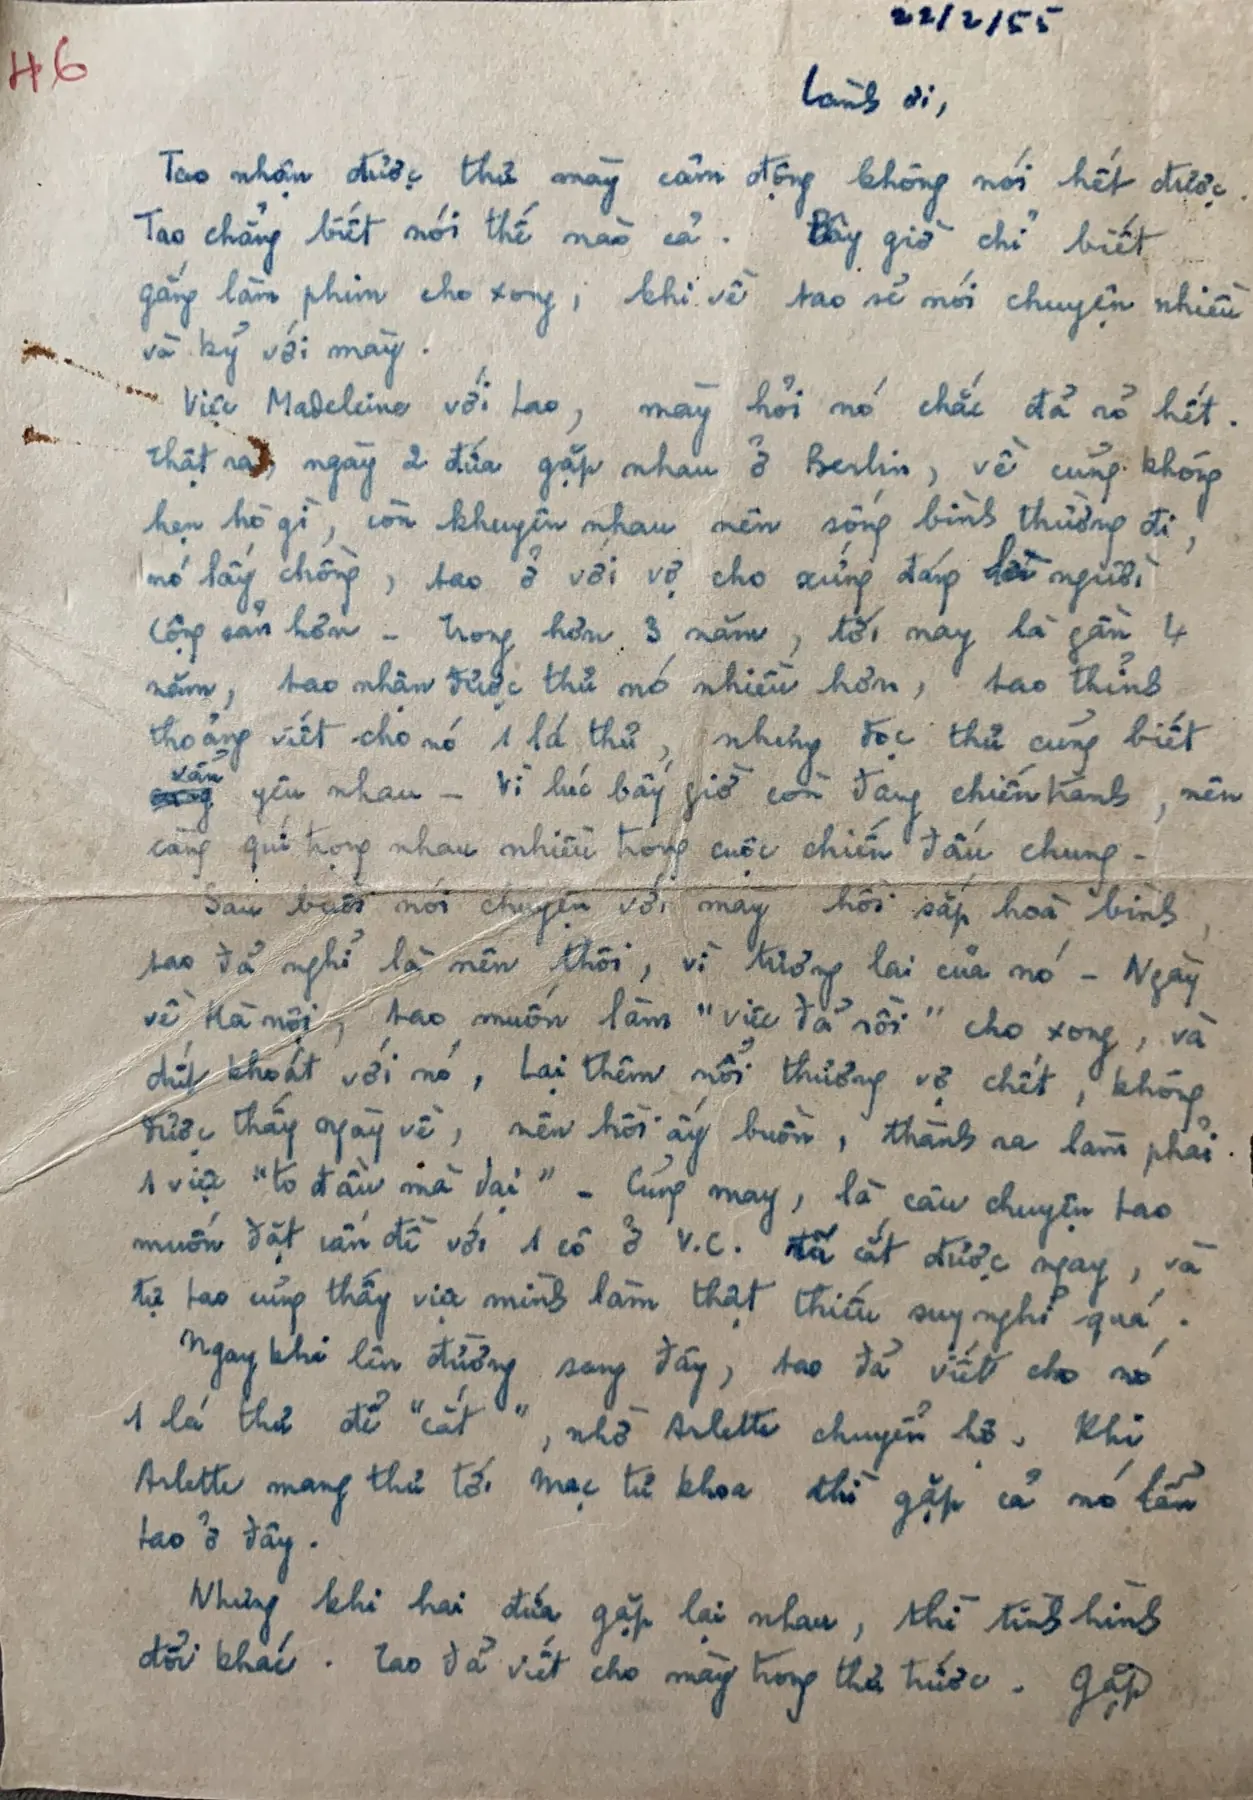 22/2/55
46
Lành ơi,
Tao nhận được thư mày cảm động không nói hết được.
Tao chẳng biết nói thế nào cả. Bây giờ chỉ biết
gắng làm phim cho xong, khi về tao sẽ nói chuyện nhiều
và kỷ với mày.
Việc Madeleine với tao, mày hỏi nó chắc đả rỏ hết.
Thật ra, ngày 2 đứa gặp nhau ở Berlin, về củng không
hẹn hò gì, còn khuyên nhau nên sống bình thường đi,
nó lấy chồng, tao ở với vợ cho xứng đáng người
Cộng sản hơn - Trong hơn 3 năm, tới nay là gần 4
năm, tao nhận được thư nó nhiều hơn, tao thỉnh
thoảng viết cho nó 1 lá thư, nhưng đọc thư củng biết
vẩn yêu nhau - Vì lúc bấy giờ còn đang chiến tranh, nên
càng quí trọng nhau nhiều trong cuộc chiến đấu chung -
Sau buổi nói chuyện với mày hồi sắp hoà bình,
tao đả nghỉ là nên thôi, vì tương lai của nó - Ngày
về Hà nội, tao muốn làm "việc đả rồi" cho xong, và
dứt khoát với nó, lại thêm nổi thương vợ chết, không
được thấy ngày về, nên hồi ấy buồn, thành ra làm phải
1 việc "to đầu mà dại" - Củng may, là câu chuyện tao
muốn đặt vấn đề với 1 cô ở V.C. đã cắt được ngay, và
tự tao củng thấy việc mình làm thật thiếu suy nghỉ quá.
Ngay khi lên đường sang đây, tao đả viết cho nó
1 lá thư để "cắt", nhờ Arlette chuyển hộ. Khi
Arlette mang thư tới Mạc tư khoa thì gặp cả nó lẩn
tao ở đây.
Nhưng khi hai đứa gặp lại nhau, thì tình hình
đổi khác. Tao đả viết cho mày trong thư trước. Gặp